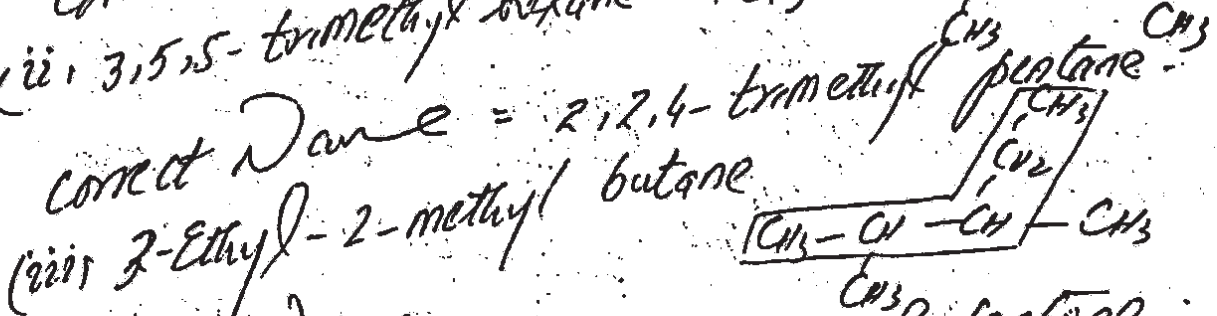 (ii, 3,5,5- trimethyl hexane CH3
CH3 CH3
Correct Name = 2,2,4- trimethyl pentane.
(iii, 3-Ethyl-2-methyl butane
CH3
CH2
CH3 - CH - CH - CH3
CH3